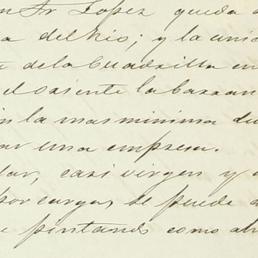 n Sr Lopez queda a
a del Rio; y la unio
de la Cuadrilla en
el oriente la barran
in la mas minima du
ar una empresa.
lar, casi virgen y a
por cargas se puede a
e pintando como ab